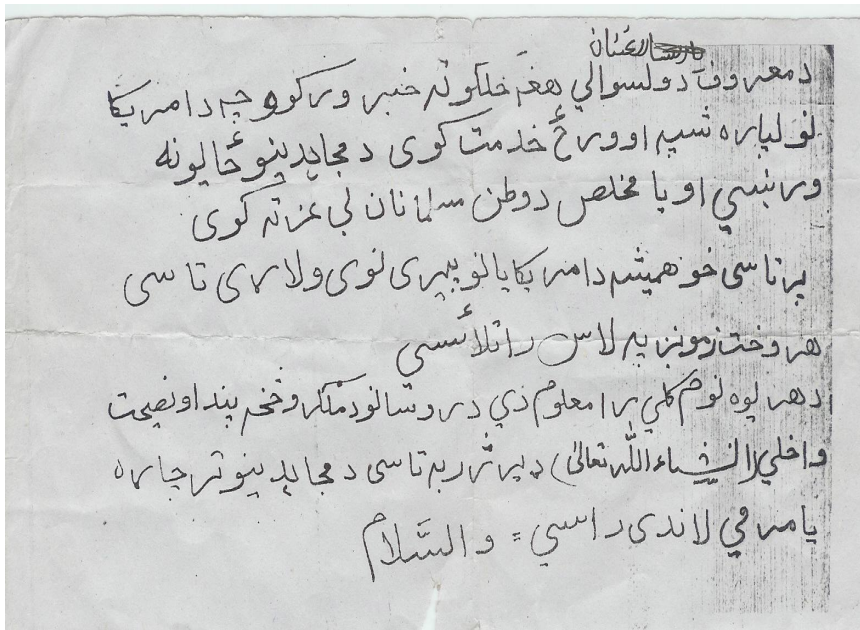 د معروف د ولسوالي هغه خلکو ته خبر ورکوو چه د امریکا
نو لپاره شپه او ورځ خدمت کوی د مجاہدینو ځایونه
ور ښيي او یا مخلص د وطن مسلمانان بی عزته کوی
پر تاسی خو همیشه د امریکایانو پهری نوی ولاړی تاسی
هر وخت زمونږ په لاس راتلائسی
د هر یوه نوم کلي را معلوم دي در وسانو د ملګرو څخه پند او نصیحت
واخلي (انشاء الله تعالی) ډیر ژر به تاسی د مجاہدینو تر چاړه
یا مرمي لاندی راسي = والسَّلام